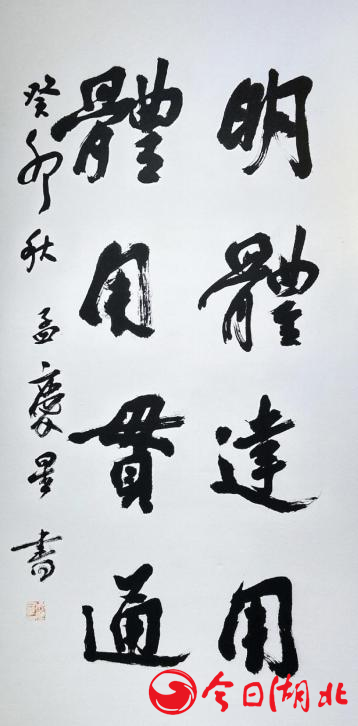 明體達用
體用貫通
癸卯秋 孟慶星書
今日湖北